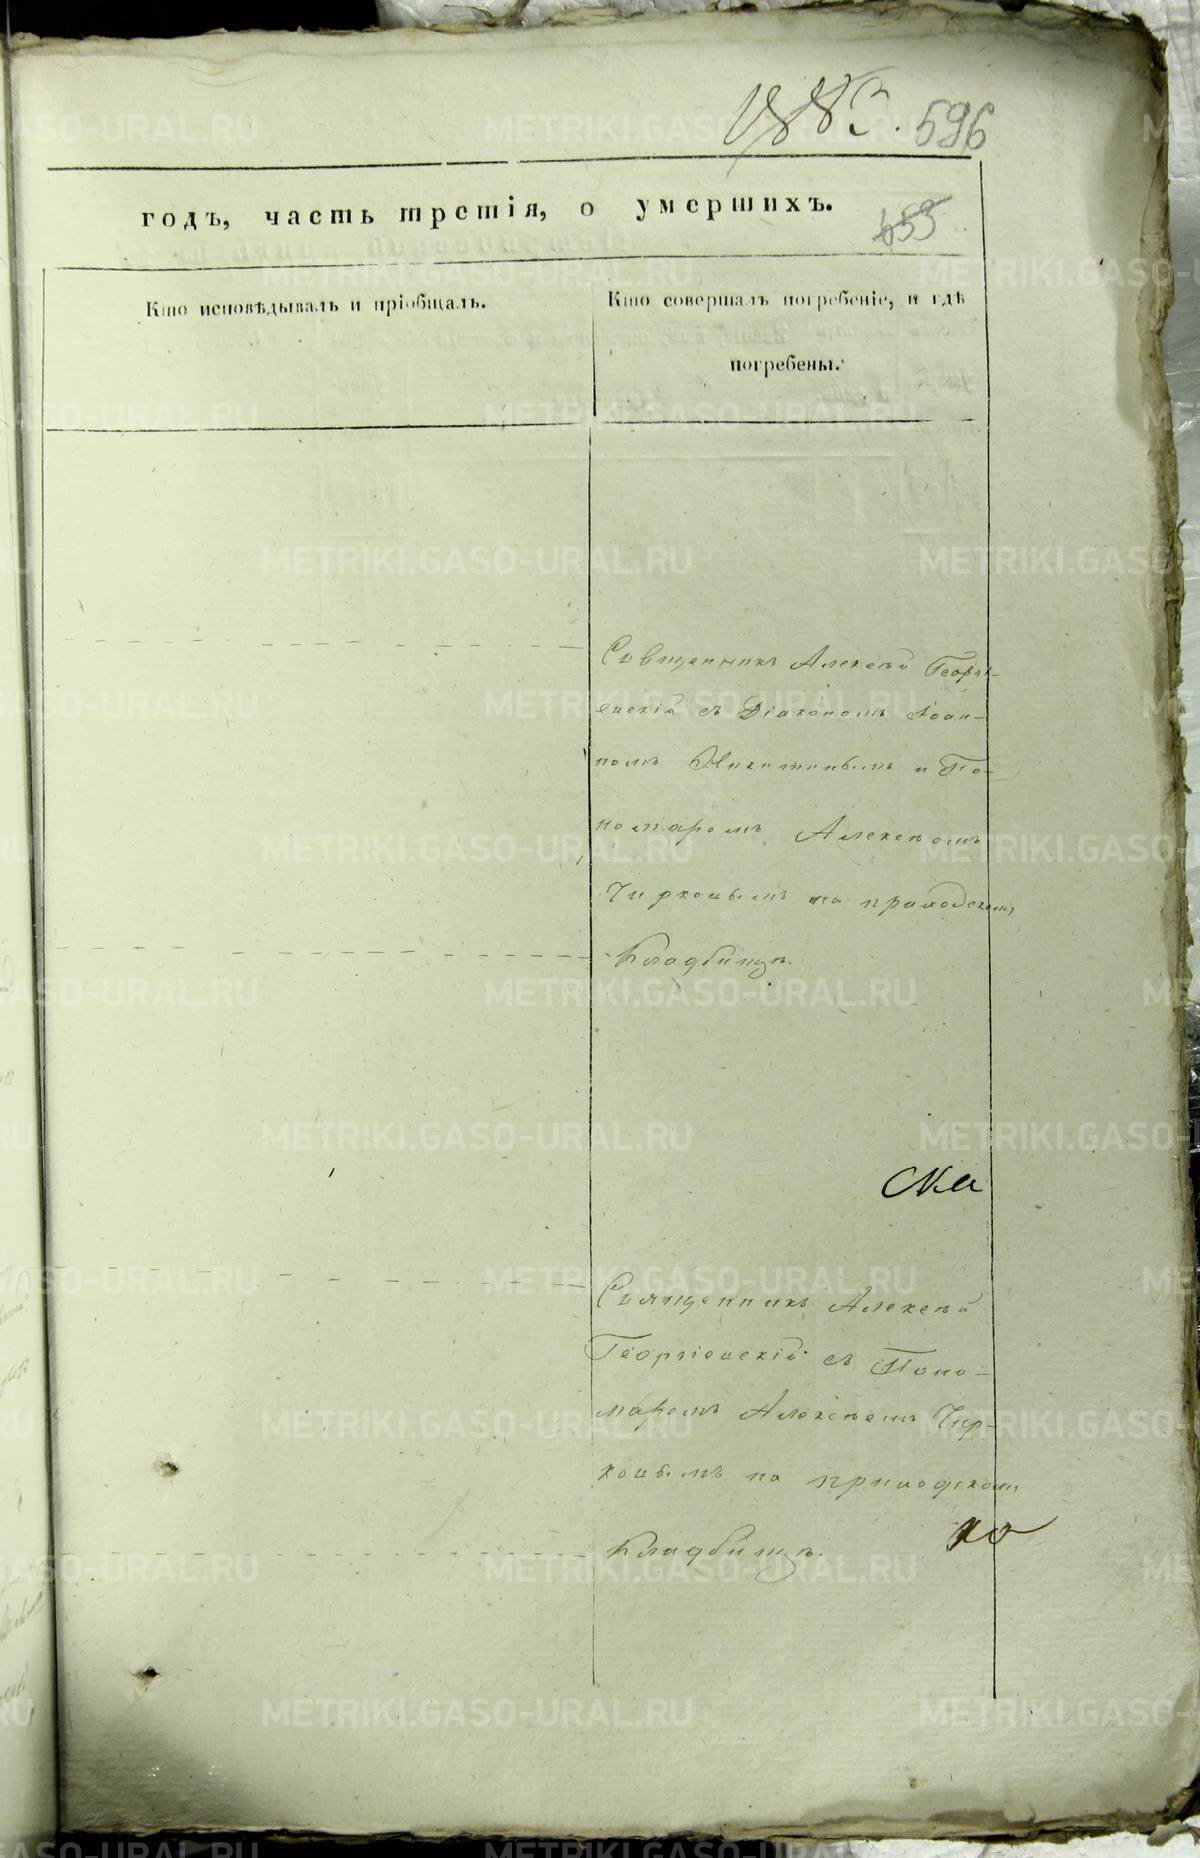 596
годъ, часть третія, о умершихъ.
653
Кто исповѣдывалъ и пріобщалъ.
Кто совершалъ погребеніе, и гдѣ
погребены.
Священникъ Алексѣй Георгі-
евскій съ Діакономъ Іоан-
номъ Никитинымъ и По-
номаромъ Алексѣемъ
Чирковымъ на приходскомъ
Кладбищѣ.
Священникъ Алексѣй
Георгіевскій съ Поно-
маремъ Алексѣемъ Чир-
ковымъ на приходскомъ
Кладбищѣ.
METRIKI.GASO-URAL.RU